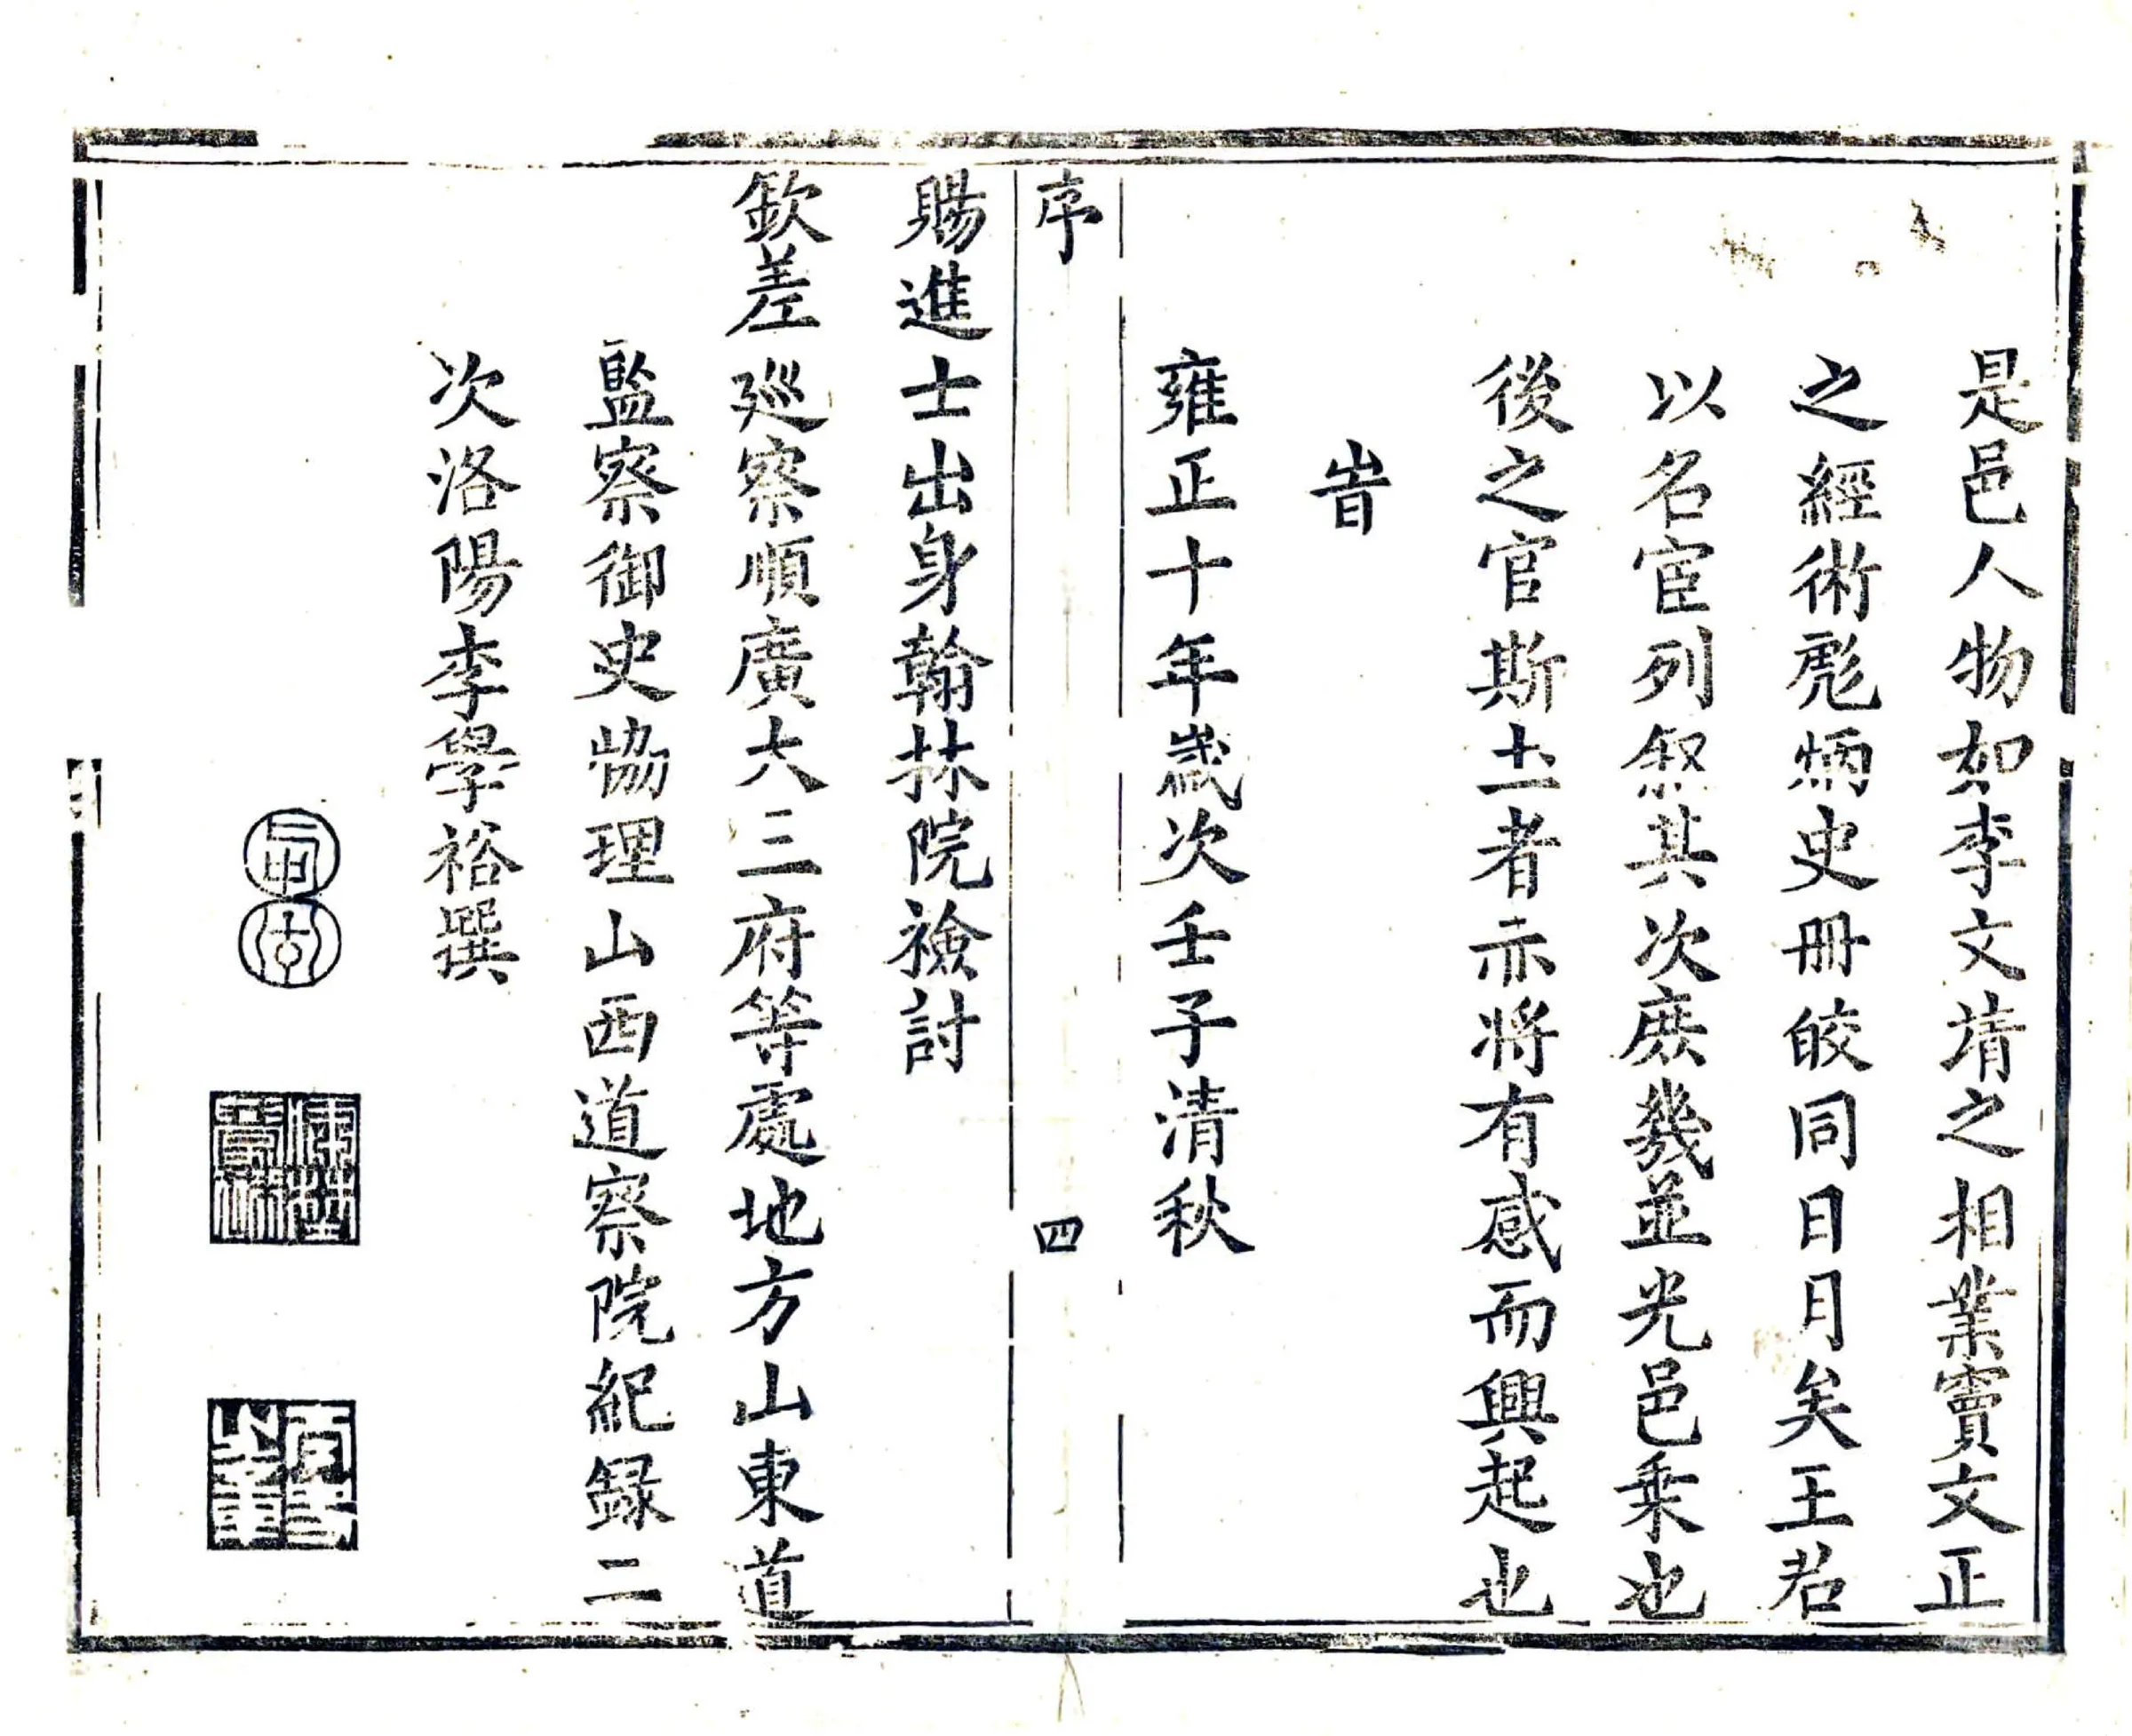 是邑人物如李文靖之相業竇文正
之經術彪炳史冊皎同日月矣王君
以名宦列叙其次庶幾並光邑乗也
後之官斯土者亦将有感而興起也
旹
雍正十年歲次壬子清秋
序
四
賜進士出身翰林院檢討
欽差廵察順廣大三府等處地方山東道
監察御史協理山西道察院紀録二
次洛陽李學裕撰